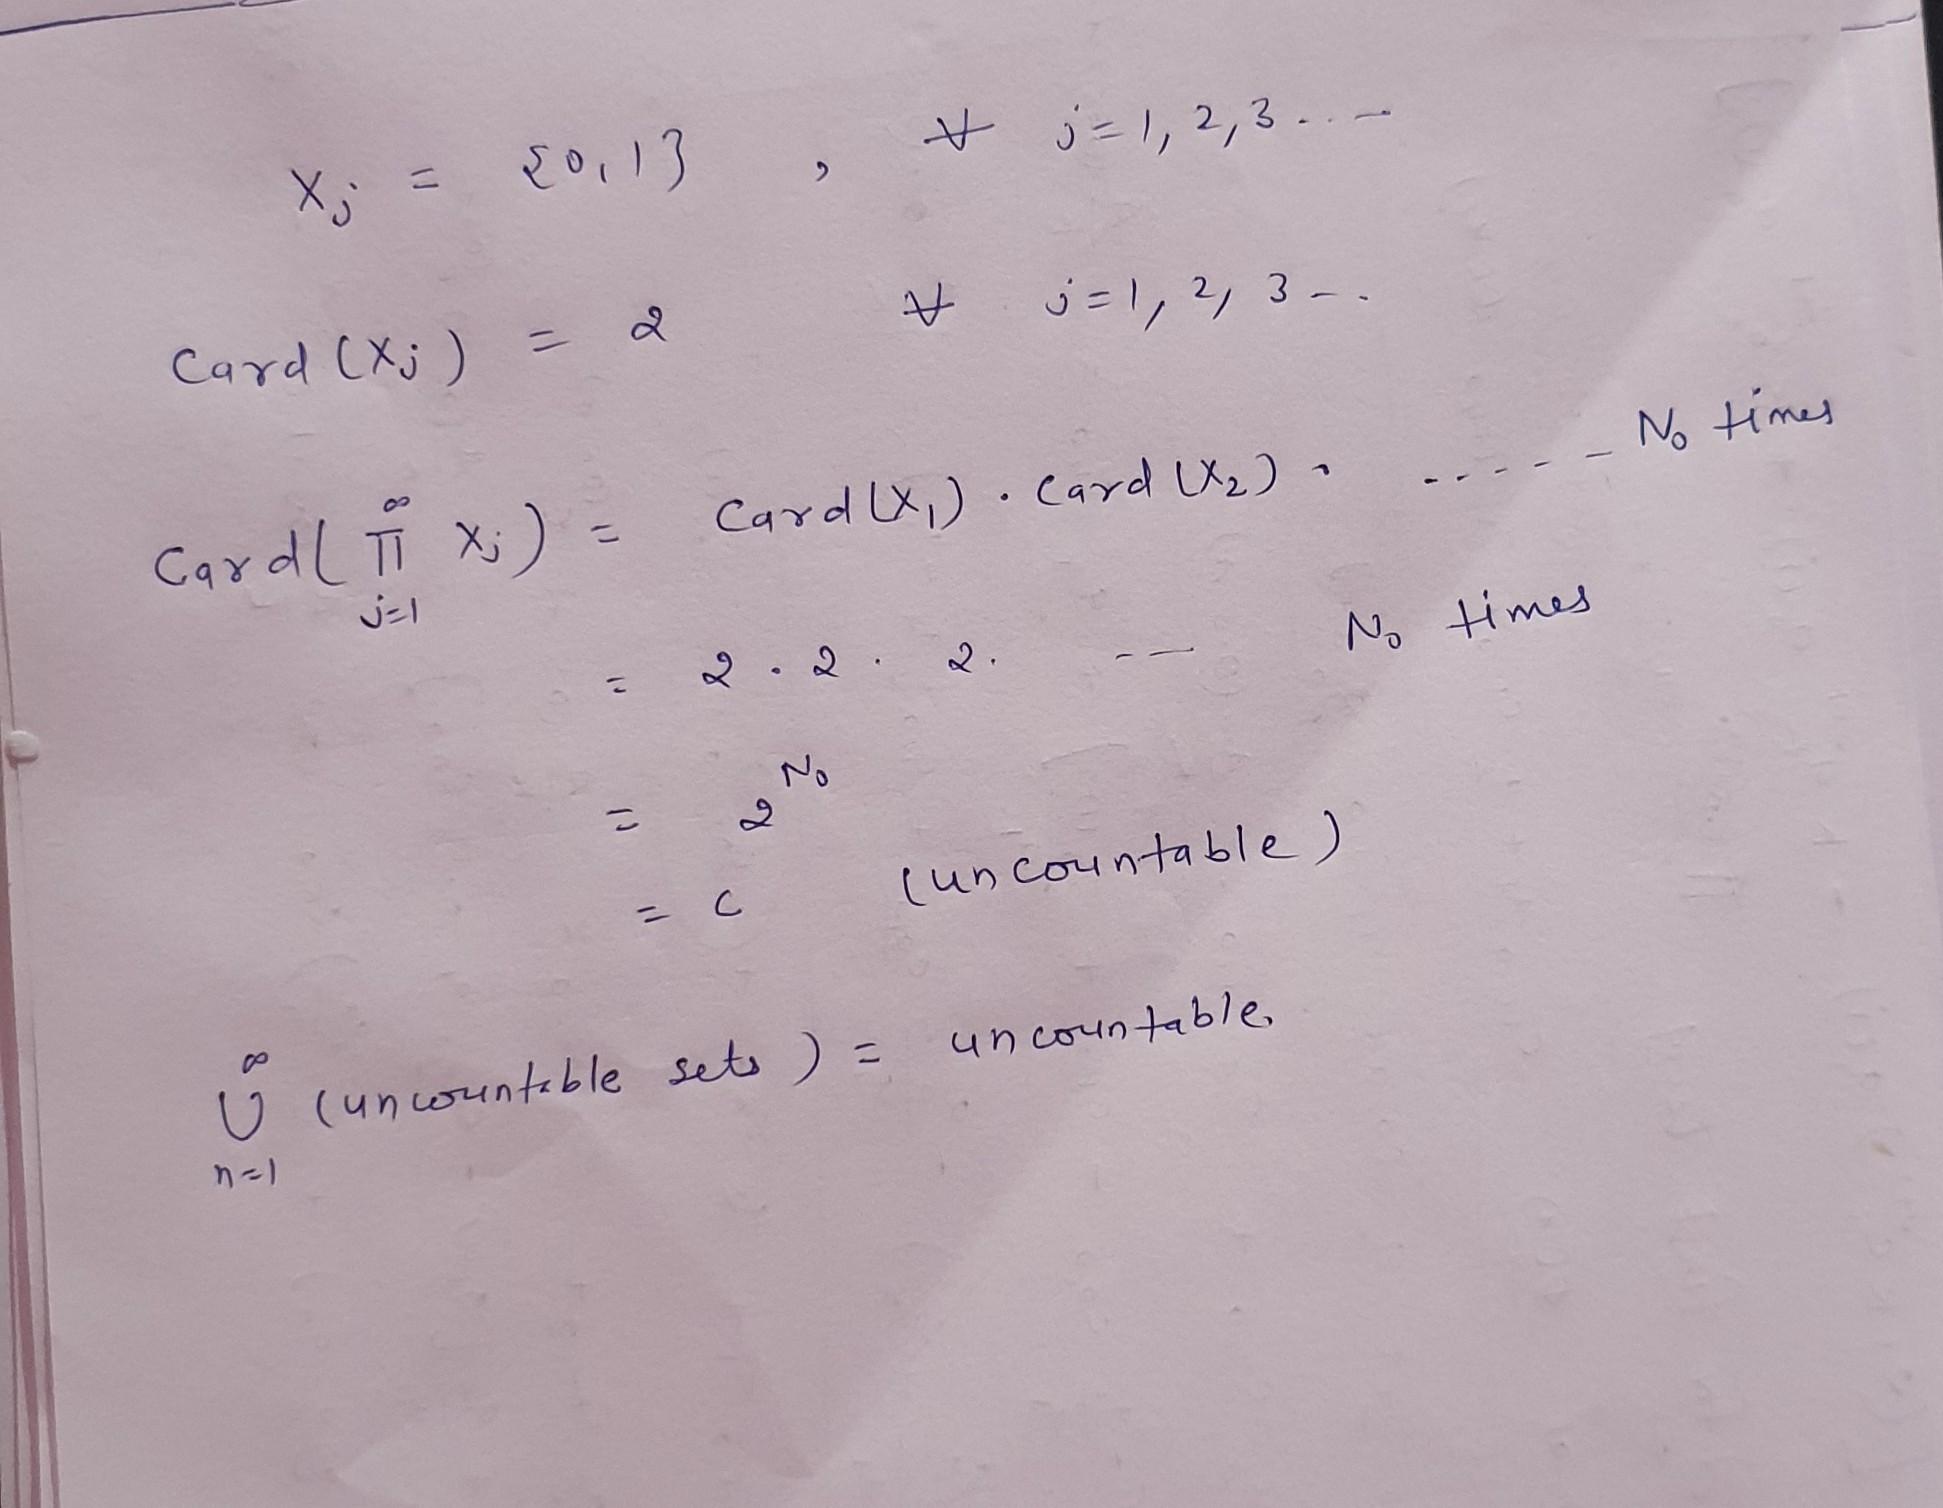 Xj = {0,1} , ∀ j=1, 2, 3 ...
Card (Xj) = 2 ∀ j=1, 2, 3 ...
Card( ∞ Π j=1 Xj ) = Card(X1) . Card (X2) . ..... N0 times
= 2 . 2 . 2. --- N0 times
= 2^N0
= c (uncountable)
∞ ∪ n=1 (uncountable sets) = uncountable.